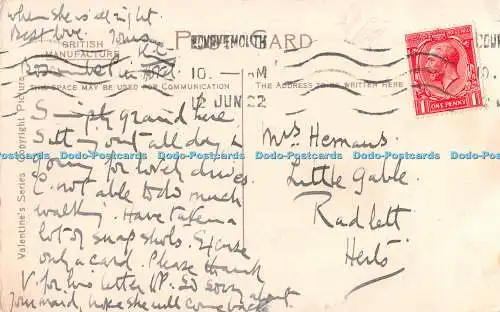 when she is all right.
Best love. Yours
K.C.
POST CARD
BRITISH
MANUFACTURE
THIS SPACE MAY BE USED FOR COMMUNICATION
THE ADDRESS TO BE WRITTEN HERE
BOURNEMOUTH
10 - AM
12 JUN 22
ONE PENNY
Valentine's Series Copyright Picture
Simply grand here
Sitting out all day &
going for lovely drives.
E. not able to do much
walking. Have taken a
lot of snapshots. Excuse
only a card. Please thank
V. for his letter. So sorry about
your maid, hope she will come back
Mrs Hemans.
Little Gable.
Radlett
Herts
Dodo-Postcards Dodo-Postcards Dodo-Postcards Dodo-Postcards